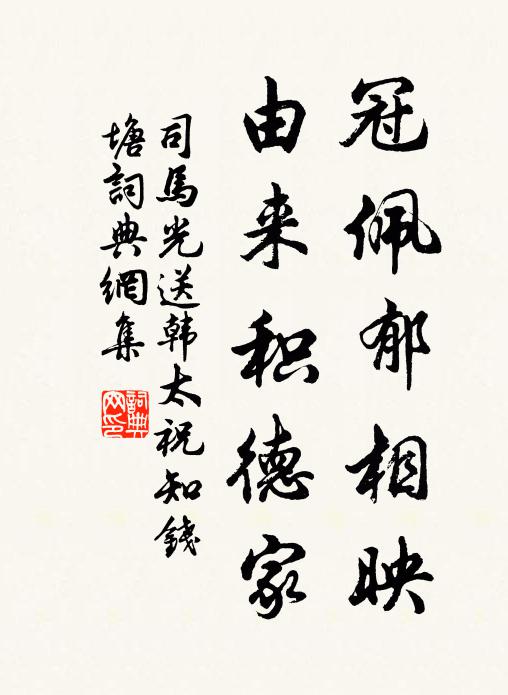 冠佩郁相映
由来积德家
司馬光送韩太祝知錢
塘詞典網集
詞典网印